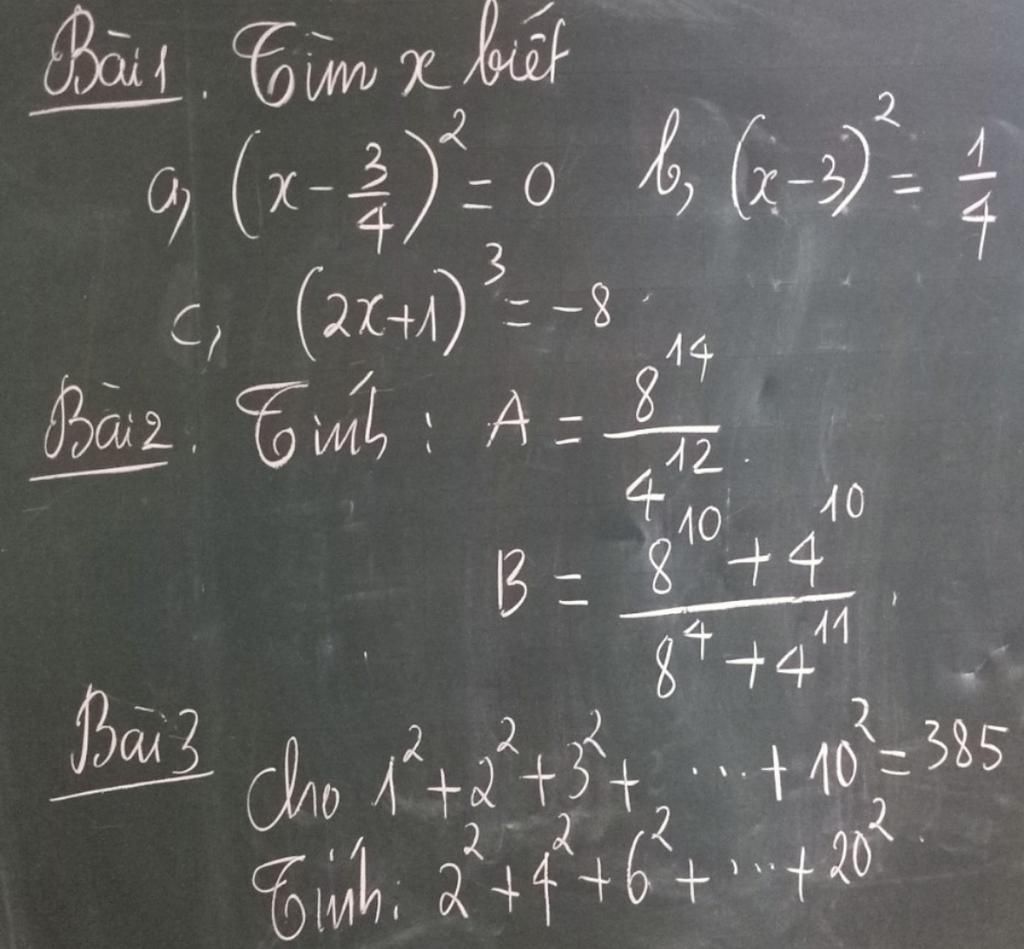 Bài 1. Tìm x biết
a, (x - 3/4)² = 0 b, (x - 3)² = 1/4
c, (2x+1)³ = -8
Bài 2. Tính : A = 8¹⁴/4¹².
B = (8¹⁰ + 4¹⁰)/(8⁴ + 4¹¹).
Bài 3 Cho 1² + 2² + 3² + ... + 10² = 385
Tính: 2² + 4² + 6² + ... + 20².